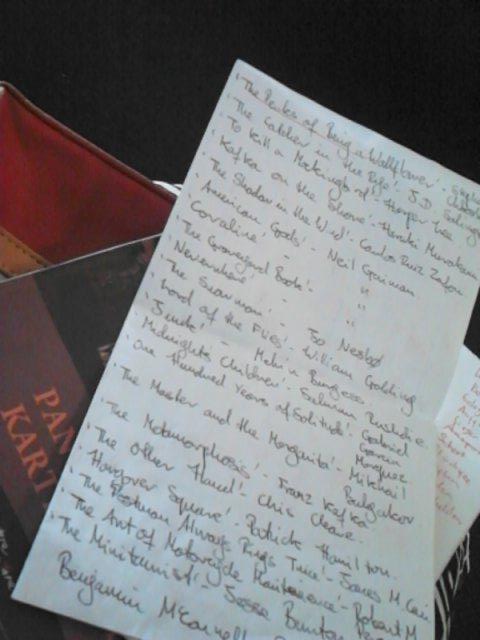 'The Perks of Being a Wallflower'.
'The Catcher in the Rye'. J.D. Salinger
'To Kill a Mockingbird' - Harper Lee
'Kafka on the Shore'. Haruki Murakami
'The Shadow in the Wind'. Carlos Ruiz Zafon
'American Gods' - Neil Gaiman
'Coraline' - "
'The Graveyard Book' "
'Neverwhere' - "
'The Snowman' - Jo Nesbo
'Lord of the Flies'. William Golding
'Junk' - Melvin Burgess
'Midnights Children'. Salman Rushdie
'One Hundred Years of Solitude'. Gabriel Garcia Marquez
'The Master and the Margarita' - Mikhail Bulgakov
'The Metamorphosis'. Franz Kafka
'The Other Hand' - Chris Cleave
'Hangover Square'. Patrick Hamilton
'The Postman Always Rings Twice' - James M. Cain
'The Art of Motorcycle Maintenance' - Robert M
'The Miniturist' - Jesse Burton
Benjamin McConnell
PAN
KART